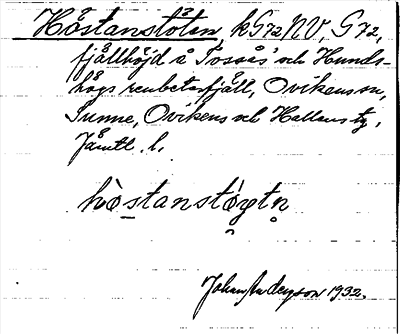 Höstanstöten, kG72NV, G72,
fjällhöjd å Tossås' och Hunds-
hågs renbetesfjäll, Ovikens sn,
Sunne, Ovikens och Hallens tg,
Jämtl. l.
Johan Anderzson 1932.